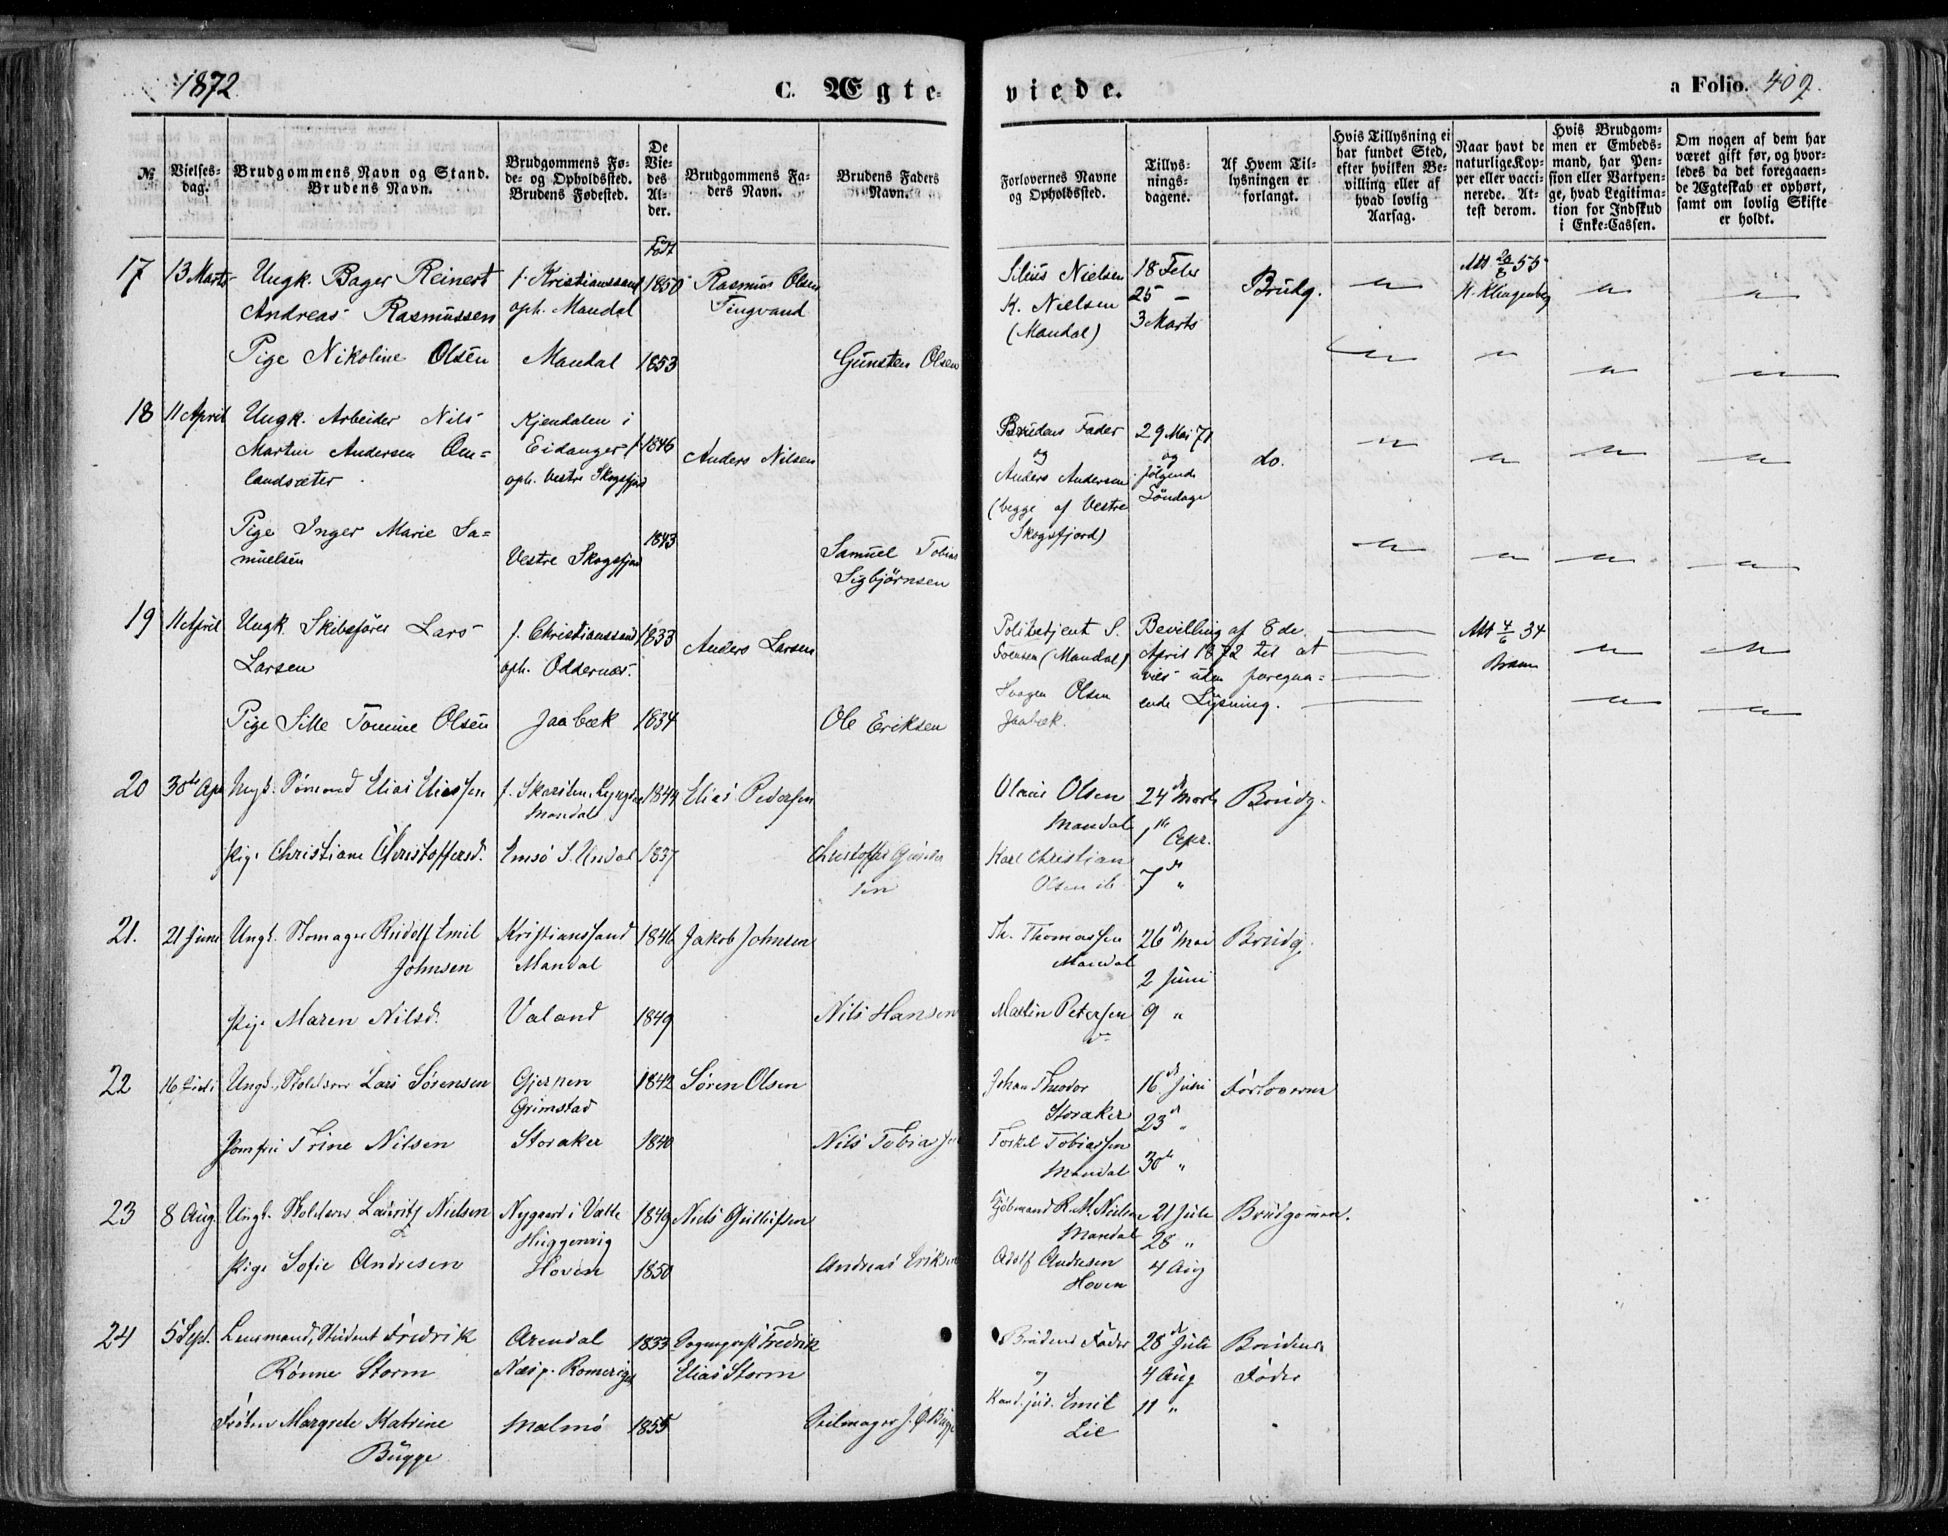 1872
C. Ægte-
viede.
a Folio. 409.
№
Vielses-
dag.
Brudgommens Navn og Stand.
Brudens Navn.
Brudgommens Fø-
de- og Opholdssted.
Brudens Fødested.
De
Vie-
des
Al-
der.
Brudgommens Fa-
ders Navn.
Brudens Faders
Navn.
Forlovernes Navne
og Opholdssted.
Tillys-
nings-
dagene.
Af Hvem Til-
lysningen er
forlangt.
Hvis Tillysning ei
har fundet Sted,
efter hvilken Be-
villing eller af
hvad lovlig
Aarsag.
Naar havt de
naturlige Kop-
per eller vacci-
nerede. At-
test derom.
Hvis Brudgom-
men er Embeds-
mand, har Pen-
sion eller Vartpen-
ge, hvad Legitima-
tion for Indskud
i Enke-Cassen.
Om nogen af dem har
været gift før, og hvor-
ledes da det foregaaen-
de Ægteskab er ophørt,
samt om lovlig Skifte
er holdt.
Født
17
13 Marts
Ungk. Bager Reinert
Andreas Rasmussen
f. Kristianssand
oph. Mandal
1850
Rasmus Olsen
Tingvand
Silius Nielsen
K. Nielsen
(Mandal)
18 Febr
25 —
3 Marts
Brudg.
Att 20/8 55
H. Klingenberg
Pige Nikoline Olsen
Mandal
1853
Gunsten Olsen
18
11 April
Ungk. Arbeider Nils
Martin Andersen Om=
landsæter
Kjendalen i
Eidanger f.
oph. Vestre Skogsfjord
1846
Anders Nilsen
Brudens Fader
og
Anders Andersen
(begge af Vestre
Skogsfjord)
29 Mai 71
og
følgende
Søndage
do.
Pige Inger Marie Sa=
muelsen
Vestre Skogsfjord
1843
Samuel Tobias
Sigbjørnsen
19
11 April
Ungk. Skibsfører Lars
Larsen
f. Christianssand
oph. Oddernæs.
1833
Anders Larsen
Politibetjent S.
Svensen (Mandal)
Olsen
Jaabæk.
Bevilling af 8de
April 1872 til at
vies uden foregaa=
ende Lysning.
Att 4/6 34
Pige Sille Tomine Olsen
Jaabæk
1834
Ole Eriksen
20
30te Apr
Ungk. Sømand Elias Eliassen
f. Skarsten, Lyngdal
Mandal
1844
Elias Pedersen
Olaus Olsen
Mandal
Karl Christian
Olsen ib.
24de Marts
1ste Apr.
7de "
Brudg.
Pige Christiane Christoffersd.
Imsø S. Undal
1837
Christoffer
sen
21.
21 Juni
Ungk. Skomager Rudolf Emil
Johnsen
Kristianssand
Mandal
1846
Jakob Johnsen
Th. Thomassen
Mandal
Martin Petersen
26de Mai
2 Juni
9 "
Brudg.
Pige Maren Nilsd.
Valand
1849
Nils Hansen
22
16 Juli
Ungk. Lars Sørensen
Gjerpen
Grimstad
1842
Søren Olsen
Johan Theodor
Storaker
Torkel Tobiassen
Mandal
16de Juni
23de "
30te "
Forloverne
Jomfru Trine Nilsen
Storaker
1840
Nils Tobiassen
23
8 Aug.
Ungk. Lauritz Nielsen
Nygaard i Valle
Huggenvig
1849
Niels Gullufsen
Kjøbmand R. M. Nielsen
Mandal
Adolf Andresen
Hoven
21 Juli
28 "
4 Aug
Brudgommen.
Pige Sofie Andresen
Hoven
1850
Andreas Eriksen
24
5 Sept.
Lensmand, Student Fredrik
Rönne Storm
Arendal
Næs p. Romerige
1833
Sogneprest Fredrik
Elias Storm
Brudens Fader
og
Kand. jur. Emil
Lie
28de Juli
4 Aug
11 "
Brudens
Fader
Frøken Margrete Katrine
Bugge
Malmø
1855
Seilmager J. C. Bugge